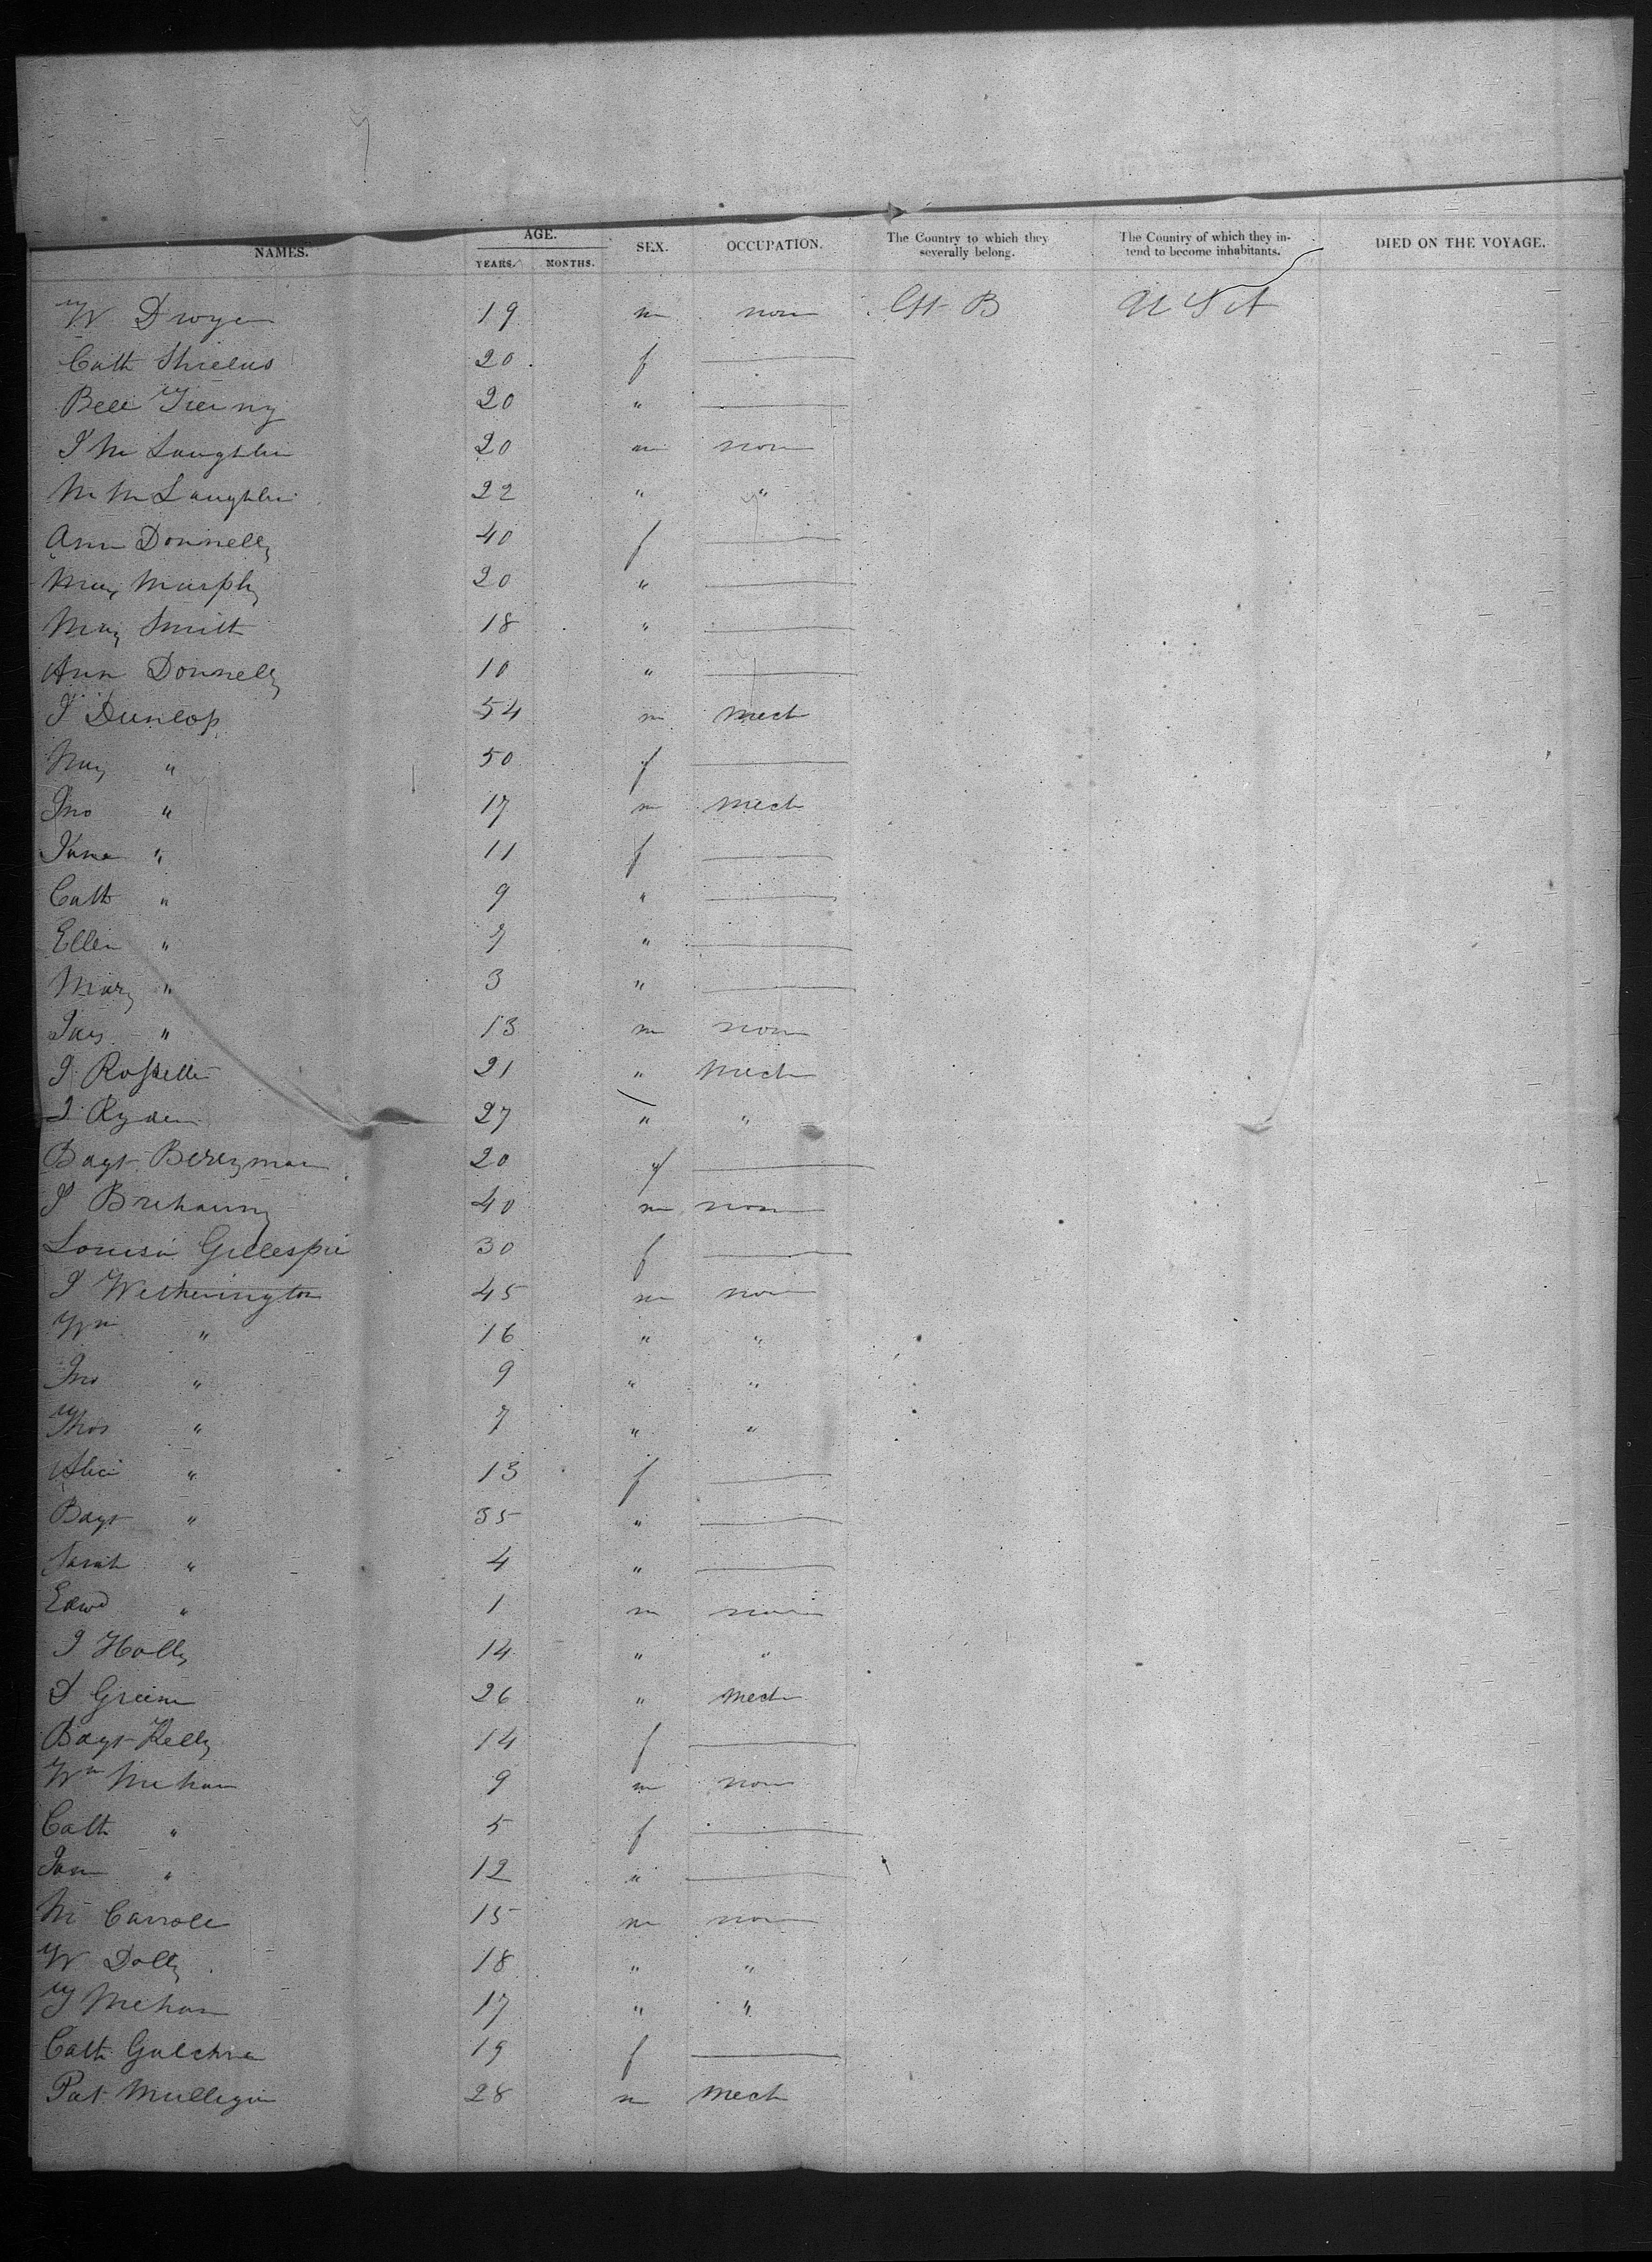 NAMES. AGE. YEARS. MONTHS. SEX. OCCUPATION. The Country to which they severally belong. The Country of which they intend to become inhabitants. DIED ON THE VOYAGE.
W Dwyer 19 m non Gt B U S A
Cath Shields 20 f
Bell 20 "
J Mc Laughlin 20 m non
M Mc Laughlin 22 " "
Ann Donnelly 40 f
Mary Murphy 20 "
Mary Smith 18 "
Ann Donnelly 10 "
J Dunlop 54 m Mech
Mary " 50 f
Jno " 17 m Mech
Jane " 11 f
Cath " 9 "
Ellen " 7 "
Mary " 3 "
Jas " 13 m non
J 21 " Mech
J Ryder 27 " "
Bagt Berryman 20 f
J 40 m non
Louisa Gillespie 30 f
J Wetherington 45 m non
Wm " 16 " "
Jno " 9 " "
Thos " 7 " "
Alice " 13 f
Bagt " 35 "
Sarah " 4 "
Edwd " 1 m non
J Holly 14 " "
D Green 26 " Mech
Bagt Kelly 14 f
Wm Mehan 9 m non
Cath " 5 f
Jane " 12 "
M Carroll 15 m non
W Dolly 18 " "
T Mehan 17 " "
Cath 19 f
Pat Mulligan 28 m Mech